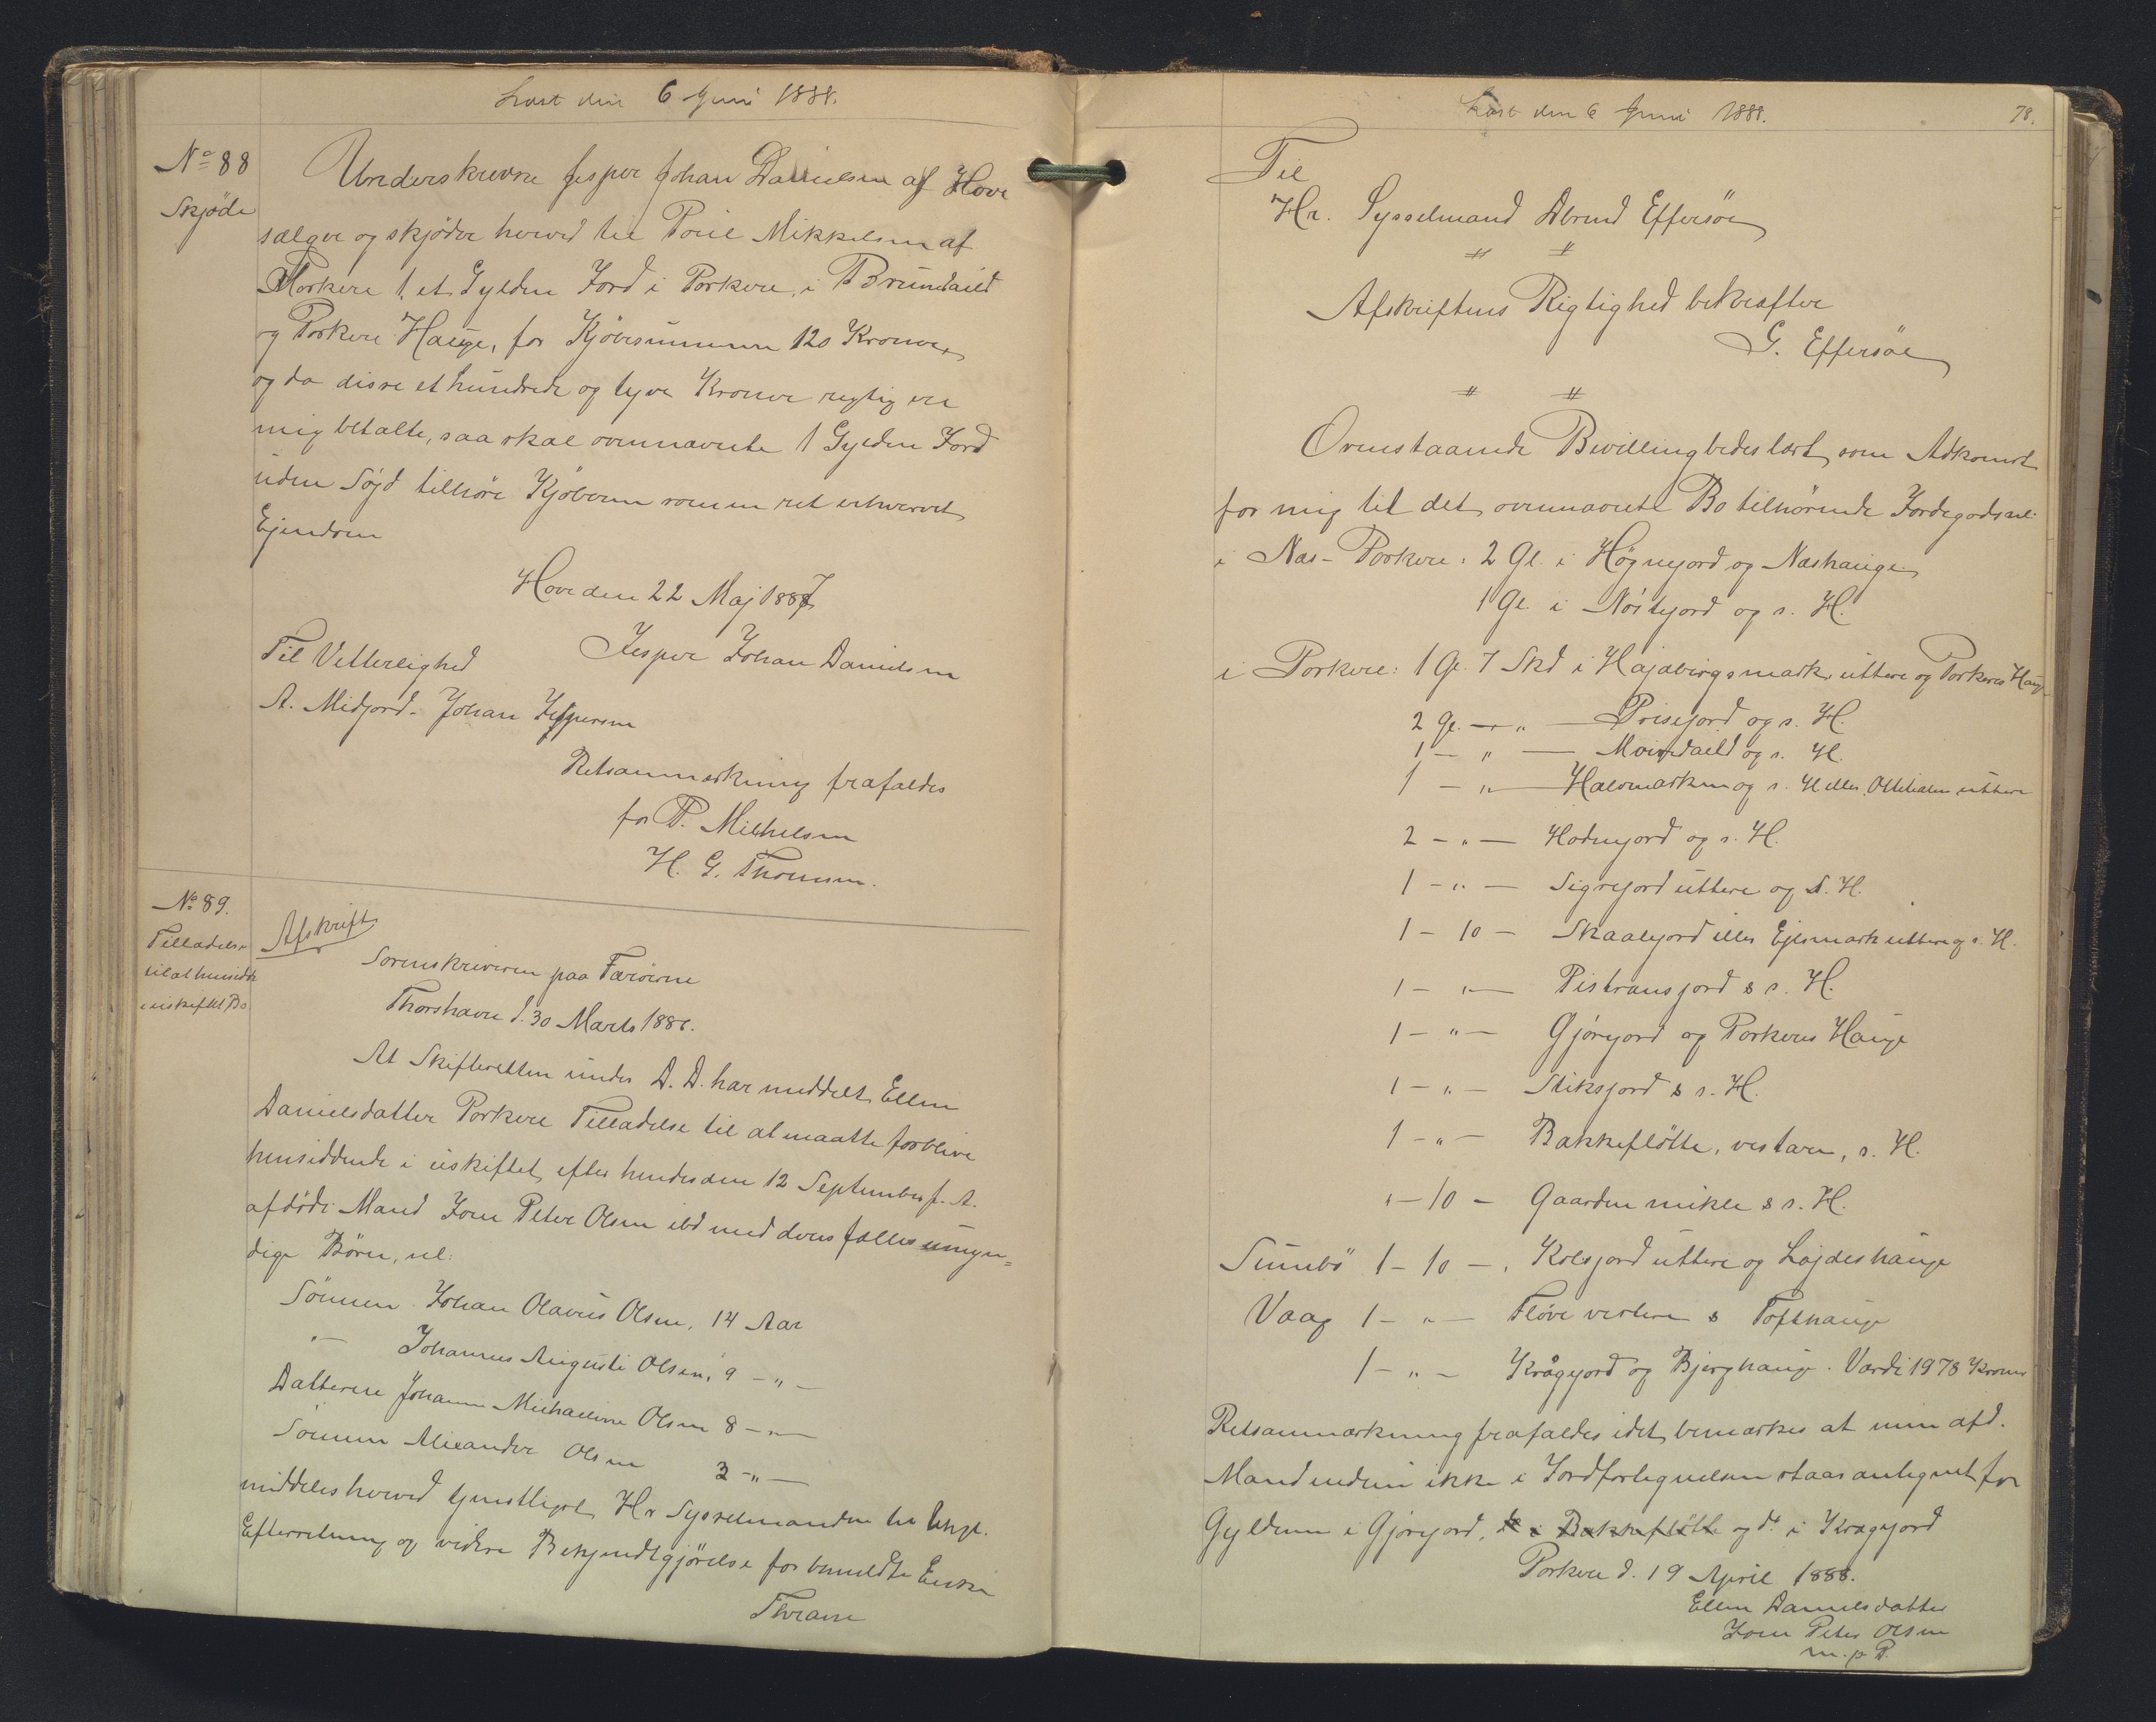 Læst den 6 Juni 1888.
No 88
Skjøde
Underskrevne Jesper Johan Danielsen af Hove
sælger og skjøder herved til Poul Mikkelsen af
Porkere 1, et Gylden Jord i Porkere, i Brundaild
og Porkere Hauge, for Kjøbesummen 120 Kroner,
og da disse et hundrede og tyve Kroner rigtig ere
mig betalte, saa skal ovennævnte 1 Gylden Jord
uden Søjd tilhøre Kjøberen som en ret erhvervet
Ejendom
Hove den 22 Maj 1887
Jesper Johan Danielsen
Til Vitterlighed
A. Midjord. Johan Jespersen
Retsanmærkning frafaldes
for P. Mikkelsen
H. G. Thomsen.
No 89.
Tilladelse
til at hensidde
i uskiftet Bo
Afskrift
Sorenskriveren paa Færöerne
Thorshavn d. 30 Marts 1886.
At Skifteretten under D. D. har meddelt Ellen
Danielsdatter Porkere Tilladelse til at maatte forblive
hensiddende i uskiftet efter hendes den 12 September f. A.
afdöde Mand Joen Peter Olsen ibd med deres fælles umyn=
dige Börn, nl:
Sönnen Johan Olavus Olsen, 14 Aar
"— Johannes Augusti Olsen, 9 — " —
Datteren Johanne Michaeline Olsen 8 — " —
Sönnen Alexander Olsen 3 — " —
meddeles herved tjenstligst Hr Sysselmanden til
Efterretning og videre Bekjendtgjörelse for bemeldte Enke
Thrane
Læst den 6 Juni 1888.
78.
Til
Hr. Sysselmand Effersöe
" "
Afskriftens Rigtighed bekræfter
G. Effersöe
" "
Ovenstaaende Bevilling bedes læst som Adkomst
for mig til det ovennævnte Bo tilhørende Jordegods nl:
i Næs-Porkere: 2 Gl. i Høgnejord og Næshauge
1 Gl. i Nöstejord og s. H.
i Porkere: 1 Gl. 7 Skd i Hajdbirgsmark, uttere og Porkeres Hauge
2 Gl. — " — Prisejord og s. H.
1 — " — Mairdaild og s. H.
1 — " — Halvmarken og s. H eller uttere
2 — " — Hodnejord og s. H.
1 — " — Sigrejord uttere og s. H.
1 — 10 — Skaalejord eller Ejlsmark uttere og s. H.
1 — " — Pistransjord & s. H.
1 — " — Gjörejord og Porkeres Hauge
1 — " — Stiksjord & s. H.
1 — " — Bakkefløtte, vestare, s. H.
" — 10 — Gaarden mikle & s. H.
Sumbö 1 — 10 — " Kolsjord uttere og Lajdeshauge
Vaag 1 — " — Fløve vestere & Tofthauge
1 — " — Krågejord og Bjerghauge. Værdi 1978 Kroner
Retsanmærkning frafaldes idet bemærkes at min afd.
Mand endnu ikke i Jordfortegnelsen staar antegnet for
Gylden i Gjörejord, do i Bakkefløtte og do i Kragejord
Porkere d. 19 April 1888.
Ellen Danielsdatter
Joen Peter Olsen
m. p. P.